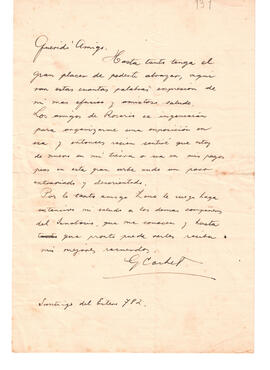 137
Querido Amigo.
Hasta tanto tenga el
gran placer de poderte abrazar, aqui
van estas cuantas palabras expresion de
mi mas efusivo y amistoso saludo.
Los amigos de Rosario se ingeniarán
para organizarme una exposición en
esa y entonces recien sentiré que estoy
de nuevo en mi tierra o sea en mis pagos
pues en esta gran urbe ando un poco
entusiasmado y desorientado.
Por lo tanto amigo le ruego haga
extensivo mi saludo a los demas compañeros
del que me conocen y hasta
que pronto pueda verles reciba
mis mejores recuerdos.
G
Santiago del Estero 782.